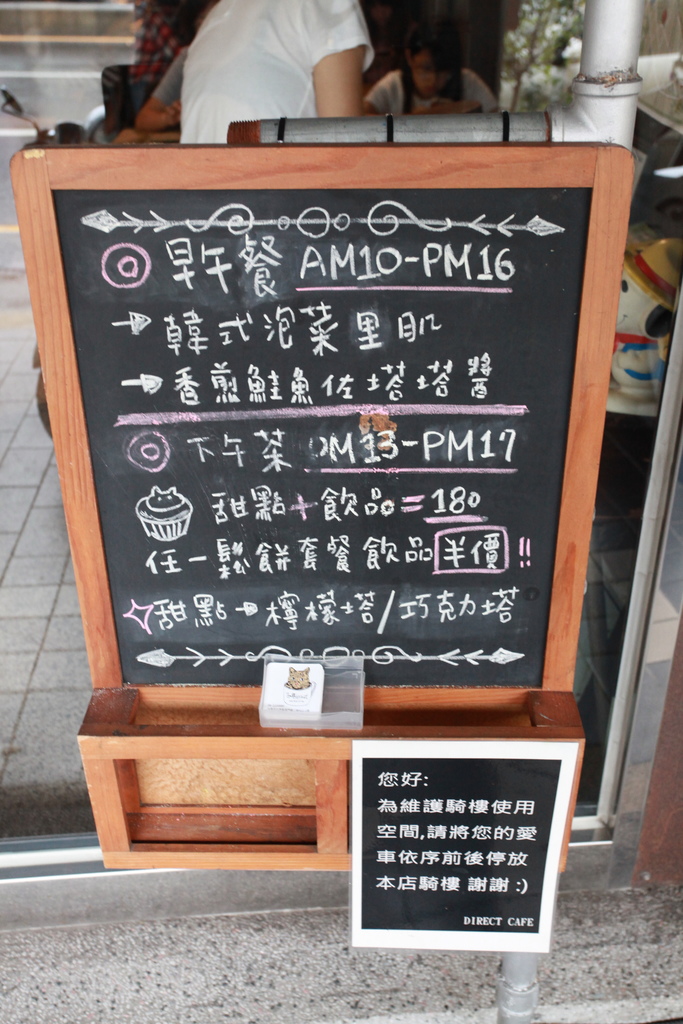 早午餐 AM10-PM16
→ 韓式泡菜里肌
→ 香煎鮭魚佐塔塔醬
下午茶 PM13-PM17
甜點+飲品=180
任一鬆餅套餐飲品半價!!
甜點→檸檬塔/巧克力塔
您好:
為維護騎樓使用
空間,請將您的愛
車依序前後停放
本店騎樓 謝謝:)
DIRECT CAFE